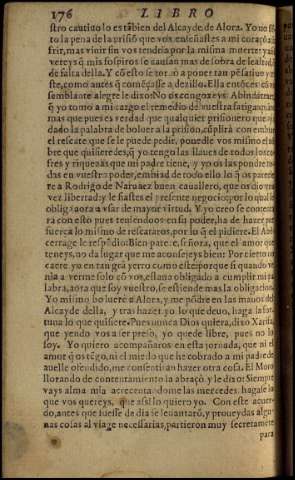 176 LIBRO
stro cautiuo lo esta bien del Alcayde de Alora. Yo me
to la pena de la prisiõ que vos enseñastes a mi coraçõ a su-
frir, mas viuir sin vos tendria por la misma muerte: y assi
vereys q̃ mis sospiros se causan mas de sobra de lealtad, q̃
de falta della. Y cõ esto se torno a poner tan pẽsatiuo y tri-
ste, como antes q̃ começasse a dezillo. Ella entõces cõ vn
semblante alegre le dixo: No os congoxeys Abindarraez
q̃ yo tomo a mi cargo el remedio de vuestra fatiga
mas que pues es verdad que qualquier prisionero que aya
dado la palabra de boluer a la prisiõ, cũplirá con embiar
el rescate que se le puede pedir, ponedle vos mismo el nõ-
bre que quisieredes, q̃ yo tengo las llaues de todos los co-
fres y riquezas que mi padre tiene, y yo os las pondre to-
das en vuestro poder, embiad de todo ello lo q̃ os parecie-
re a Rodrigo de Naruaez buen cauallero, que os dio vna
vez libertad y le fiastes el presente negocio; por lo qual le
obliga aora a vsar de mayor virtud. Y yo creo se contenta
ra con esto pues teniendo os en su poder, ha de hazer por
fuerça lo mismo de rescataros, por lo q̃ el pidiere. El Abẽ-
cerrage le respõdio: Bien parece, señora, que el amor que
teneys, no da lugar que me aconsejeys bien: Por cierto no
caere yo en tan grã yerro como este: porque si quando ve-
nia a verme solo cõ vos, estaua obligado a cumplir mi pa-
labra, aora que soy vuestro, se estiende mas la obligacion.
Yo mismo boluere a Alora, y me põdre en las manos del
Alcayde della, y tras hazer yo lo que deuo, haga la for-
tuna lo que quisiere. Pues nunca Dios quiera, dixo Xarifa,
que yendo vos a ser preso, yo quede libre, pues no lo
soy. Yo quiero acompañaros en esta jornada, que ni el
amor q̃ os tẽgo, ni el miedo que he cobrado a mi padre de
auelle ofendido, me consentirã hazer otra cosa. El Moro
llorando de contentamiento la abraçó y le dixo: Siempre
vays alma mia acrecentandome las mercedes. hagase lo
que vos quereys, que assi lo quiero yo. Con este acuer-
do, antes que fuesse de dia se leuantarõ, y proueydas algu-
nas cosas al viage necessarias, partieron muy secretamẽte
para